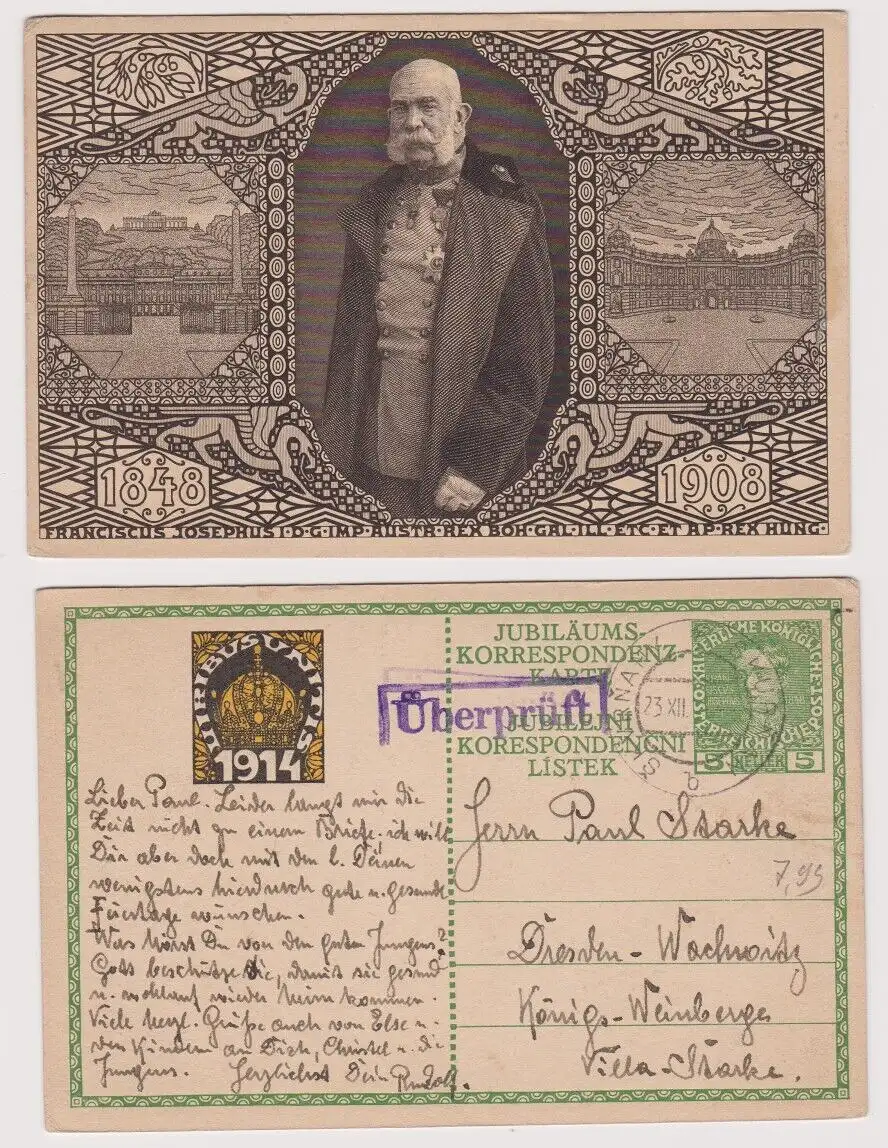 1848
1908
FRANCISCUS JOSEPHUS I·D·G·IMP·AUSTR·REX BOH·GAL·ILL·ETC·ET AP·REX HUNG·
VIRIBUS UNITIS
1914
JUBILÄUMS-
KORRESPONDENZ-
KARTE
Überprüft
JUBILEJNÍ
KORESPONDENČNÍ
LÍSTEK
23 XII
5 HELLER 5
Lieber Paul. Leider langt mir die
Zeit nicht zu einem Briefe. ich will
Dir aber doch mit den l. Deinen
wenigstens hierdurch gute u. gesunde
Feiertage wünschen.
Was hörst Du von den guten Jungens?
Gott beschütze sie, damit sie gesund
u. wohlauf wieder heim kommen.
Viele herzl. Grüße auch von Else u.
den Kindern an Dich, Christel u. die
Jungens. Herzlichst Dein Rudolf.
Herrn Paul Starke
7,95
Dresden-Wachwitz
Königs-Weinberge
Villa-Starke.